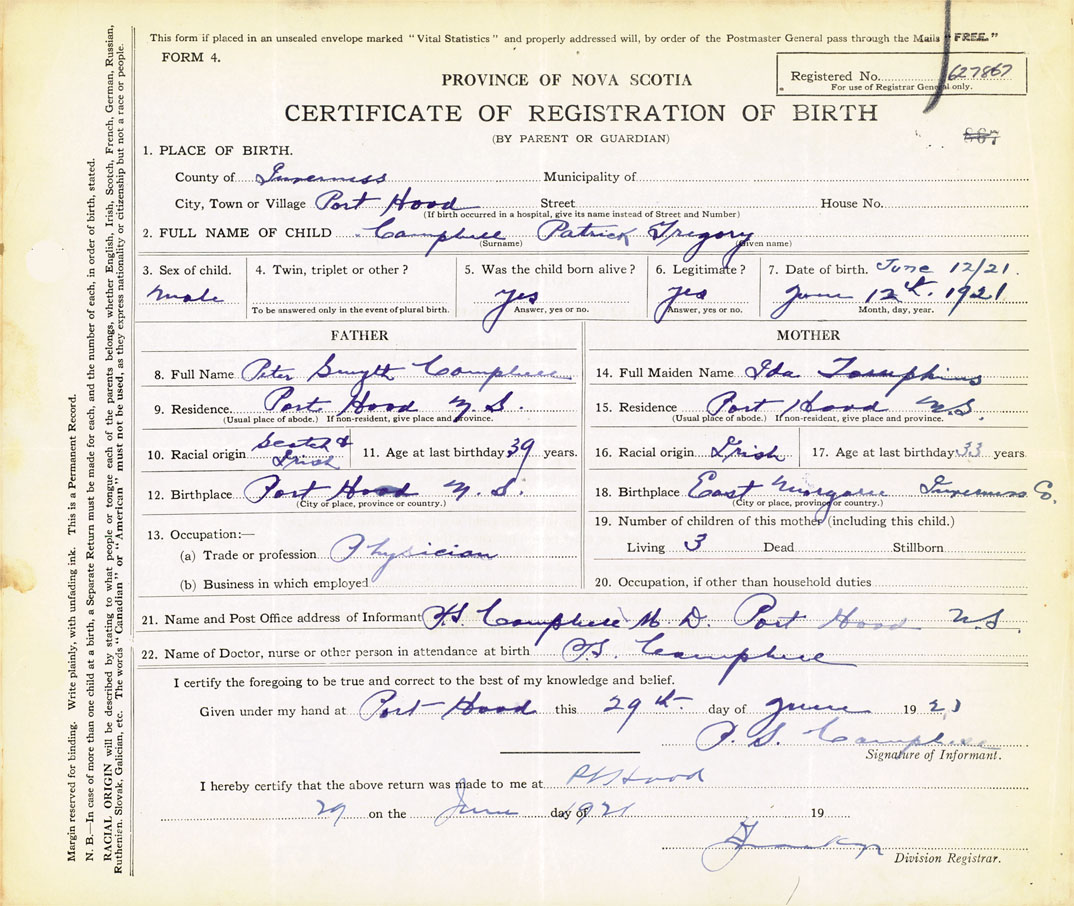 This form if placed in an unsealed envelope marked "Vital Statistics" and properly addressed will, by order of the Postmaster General pass through the Mails "FREE."
FORM 4.
PROVINCE OF NOVA SCOTIA
Registered No. 627867
For use of Registrar General only.
CERTIFICATE OF REGISTRATION OF BIRTH
(BY PARENT OR GUARDIAN)
1. PLACE OF BIRTH.
County of Inverness Municipality of
City, Town or Village Port Hood Street House No.
(If birth occurred in a hospital, give its name instead of Street and Number)
2. FULL NAME OF CHILD Campbell Patrick Gregory
(Surname) (Given name)
3. Sex of child. 4. Twin, triplet or other? 5. Was the child born alive? 6. Legitimate? 7. Date of birth. June 12/21.
male yes yes June 12th. 1921
To be answered only in the event of plural birth. Answer, yes or no. Answer, yes or no. Month, day, year.
FATHER
8. Full Name Peter Smyth Campbell
9. Residence. Port Hood N.S.
(Usual place of abode.) If non-resident, give place and province.
10. Racial origin Scotch & Irish 11. Age at last birthday 39 years.
12. Birthplace Port Hood N.S.
(City or place, province or country.)
13. Occupation:—
(a) Trade or profession Physician
(b) Business in which employed
MOTHER
14. Full Maiden Name Ida Tompkins
15. Residence Port Hood N.S.
(Usual place of abode.) If non-resident, give place and province.
16. Racial origin Irish 17. Age at last birthday 33 years
18. Birthplace East Margaree Inverness Co.
(City or place, province or country.)
19. Number of children of this mother (including this child.)
Living 3 Dead Stillborn
20. Occupation, if other than household duties
21. Name and Post Office address of Informant P.S. Campbell M.D. Port Hood N.S.
22. Name of Doctor, nurse or other person in attendance at birth P.S. Campbell
I certify the foregoing to be true and correct to the best of my knowledge and belief.
Given under my hand at Port Hood this 29th. day of June 1921
P. S. Campbell
Signature of Informant.
I hereby certify that the above return was made to me at Pt Hood
29 on the June day of 1921 19
Division Registrar.
Margin reserved for binding. Write plainly, with unfading ink. This is a Permanent Record.
N. B.—In case of more than one child at a birth, a Separate Return must be made for each, and the number of each, in order of birth, stated.
RACIAL ORIGIN will be described by stating to what people or tongue each of the parents belongs, whether English, Irish, Scotch, French, German, Russian,
Ruthenien, Slovak, Galician, etc. The words "Canadian" or "American" must not be used, as they express nationality or citizenship but not a race or people.